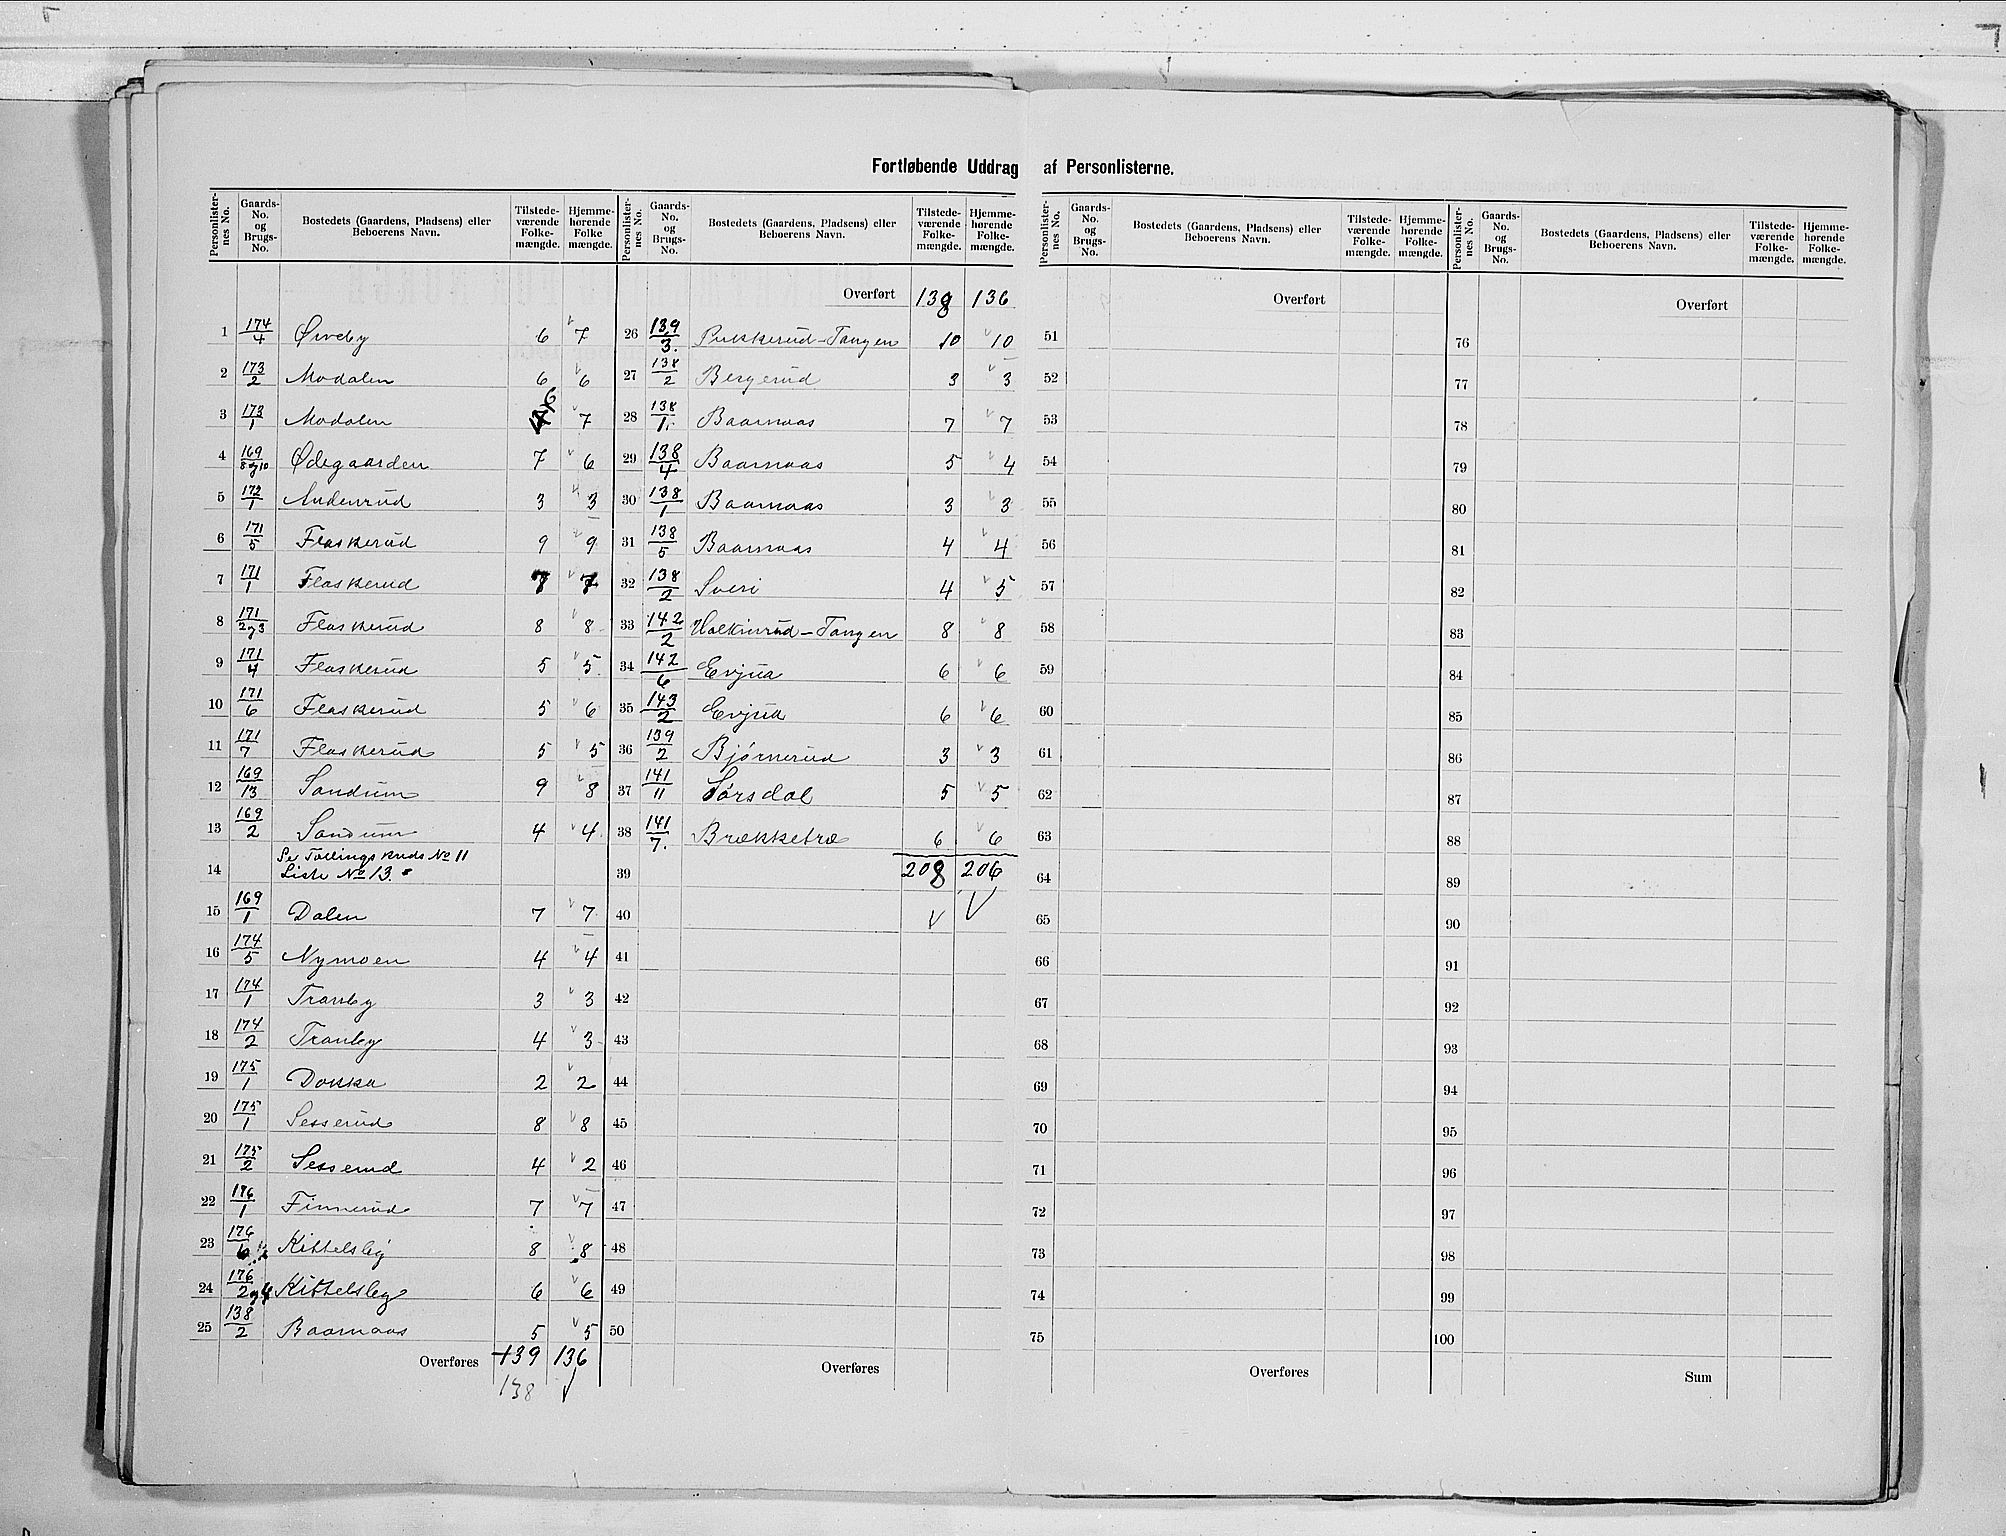 Fortløbende Uddrag af Personlisterne.
Personlister-nes No. Gaards-No. og Brugs-No. Bostedets (Gaardens, Pladsens) eller Beboerens Navn. Tilstede-værende Folke-mængde. Hjemme-hørende Folke mængde.
1 174/4 Øveby 6 7
2 173/2 Modalen 6 6
3 173/1 Modalen 6 7
4 169/8og10 Ødegaarden 7 6
5 172/1 Andenrud 3 3
6 171/5 Flaskerud 9 9
7 171/1 Flaskerud 7 7
8 171/2og3 Flaskerud 8 8
9 171/4 Flaskerud 5 5
10 171/6 Flaskerud 5 6
11 171/7 Flaskerud 5 5
12 169/13 Sandum 9 8
13 169/2 Sandum 4 4
14 Se Tællingskreds No 11
Liste No 13.
15 169/1 Dalen 7 7
16 174/5 Nymoen 4 4
17 174/1 Tranby 3 3
18 174/2 Tranby 4 3
19 175/1 Dokka 2 2
20 175/1 Sesserud 8 8
21 175/2 Sesserud 4 2
22 176/1 Finnerud 7 7
23 176/6 Kittelsby 8 8
24 176/2og4 Kittelsby 6 6
25 138/2 Baarnaas 5 5
Overføres 139 136
138
Personlister-nes No. Gaards-No. og Brugs-No. Bostedets (Gaardens, Pladsens) eller Beboerens Navn. Tilstede-værende Folke-mængde. Hjemme-hørende Folke-mængde.
Overført 138 136
26 139/3. Pukkerud-Tangen 10 10
27 138/2 Bergerud 3 3
28 138/1. Baarnaas 7 7
29 138/4 Baarnaas 5 4
30 138/1 Baarnaas 3 3
31 138/5 Baarnaas 4 4
32 138/2 Sveri 4 5
33 142/2 -Tangen 8 8
34 142/6 Evjua 6 6
35 143/2 Evjua 6 6
36 139/2 Bjørnerud 3 3
37 141/11 Sørsdal 5 5
38 141/7. Brækketræ 6 6
39 208 206
40
41
42
43
44
45
46
47
48
49
50
Overføres
Personlister-nes No. Gaards-No. og Brugs-No. Bostedets (Gaardens, Pladsens) eller Beboerens Navn. Tilstede-værende Folke-mængde. Hjemme-hørende Folke-mængde.
Overført
51
52
53
54
55
56
57
58
59
60
61
62
63
64
65
66
67
68
69
70
71
72
73
74
75
Overføres
Personlister-nes No. Gaards-No. og Brugs-No. Bostedets (Gaardens, Pladsens) eller Beboerens Navn. Tilstede-værende Folke-mængde. Hjemme-hørende Folke-mængde.
Overført
76
77
78
79
80
81
82
83
84
85
86
87
88
89
90
91
92
93
94
95
96
97
98
99
100
Sum